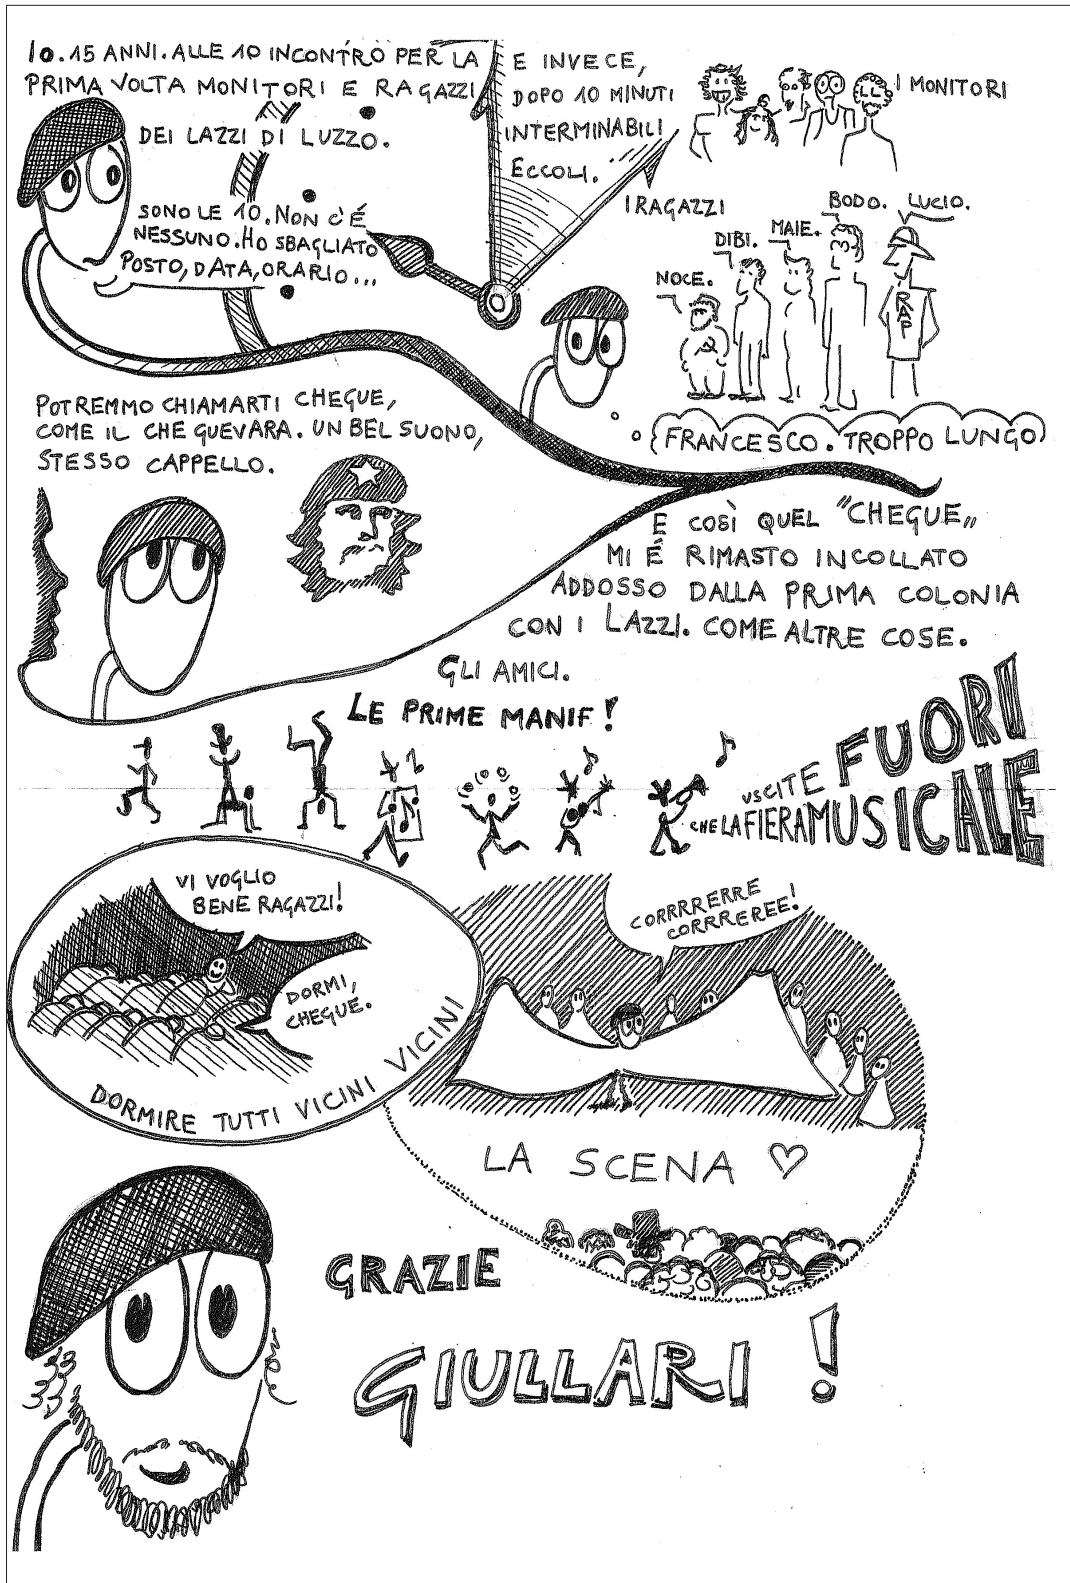 IO. 15 ANNI. ALLE 10 INCONTRO PER LA
PRIMA VOLTA MONITORI E RAGAZZI
DEI LAZZI DI LUZZO.
SONO LE 10. NON C'É
NESSUNO. HO SBAGLIATO
POSTO, DATA, ORARIO...
E INVECE,
DOPO 10 MINUTI
INTERMINABILI
ECCOLI.
I MONITORI
I RAGAZZI
NOCE.
DIBI.
MAIE.
BODO.
LUCIO.
RAP
FRANCESCO. TROPPO LUNGO
POTREMMO CHIAMARTI CHEGUE,
COME IL CHE GUEVARA. UN BEL SUONO,
STESSO CAPPELLO.
E COSÌ QUEL "CHEGUE"
MI É RIMASTO INCOLLATO
ADDOSSO DALLA PRIMA COLONIA
CON I LAZZI. COME ALTRE COSE.
GLI AMICI.
LE PRIME MANIF!
USCITE FUORI
CHE LA FIERA MUSICALE
VI VOGLIO
BENE RAGAZZI!
DORMI,
CHEGUE.
DORMIRE TUTTI VICINI VICINI
CORRRRERRE
CORRREREE!
LA SCENA ♡
GRAZIE
GIULLARI!